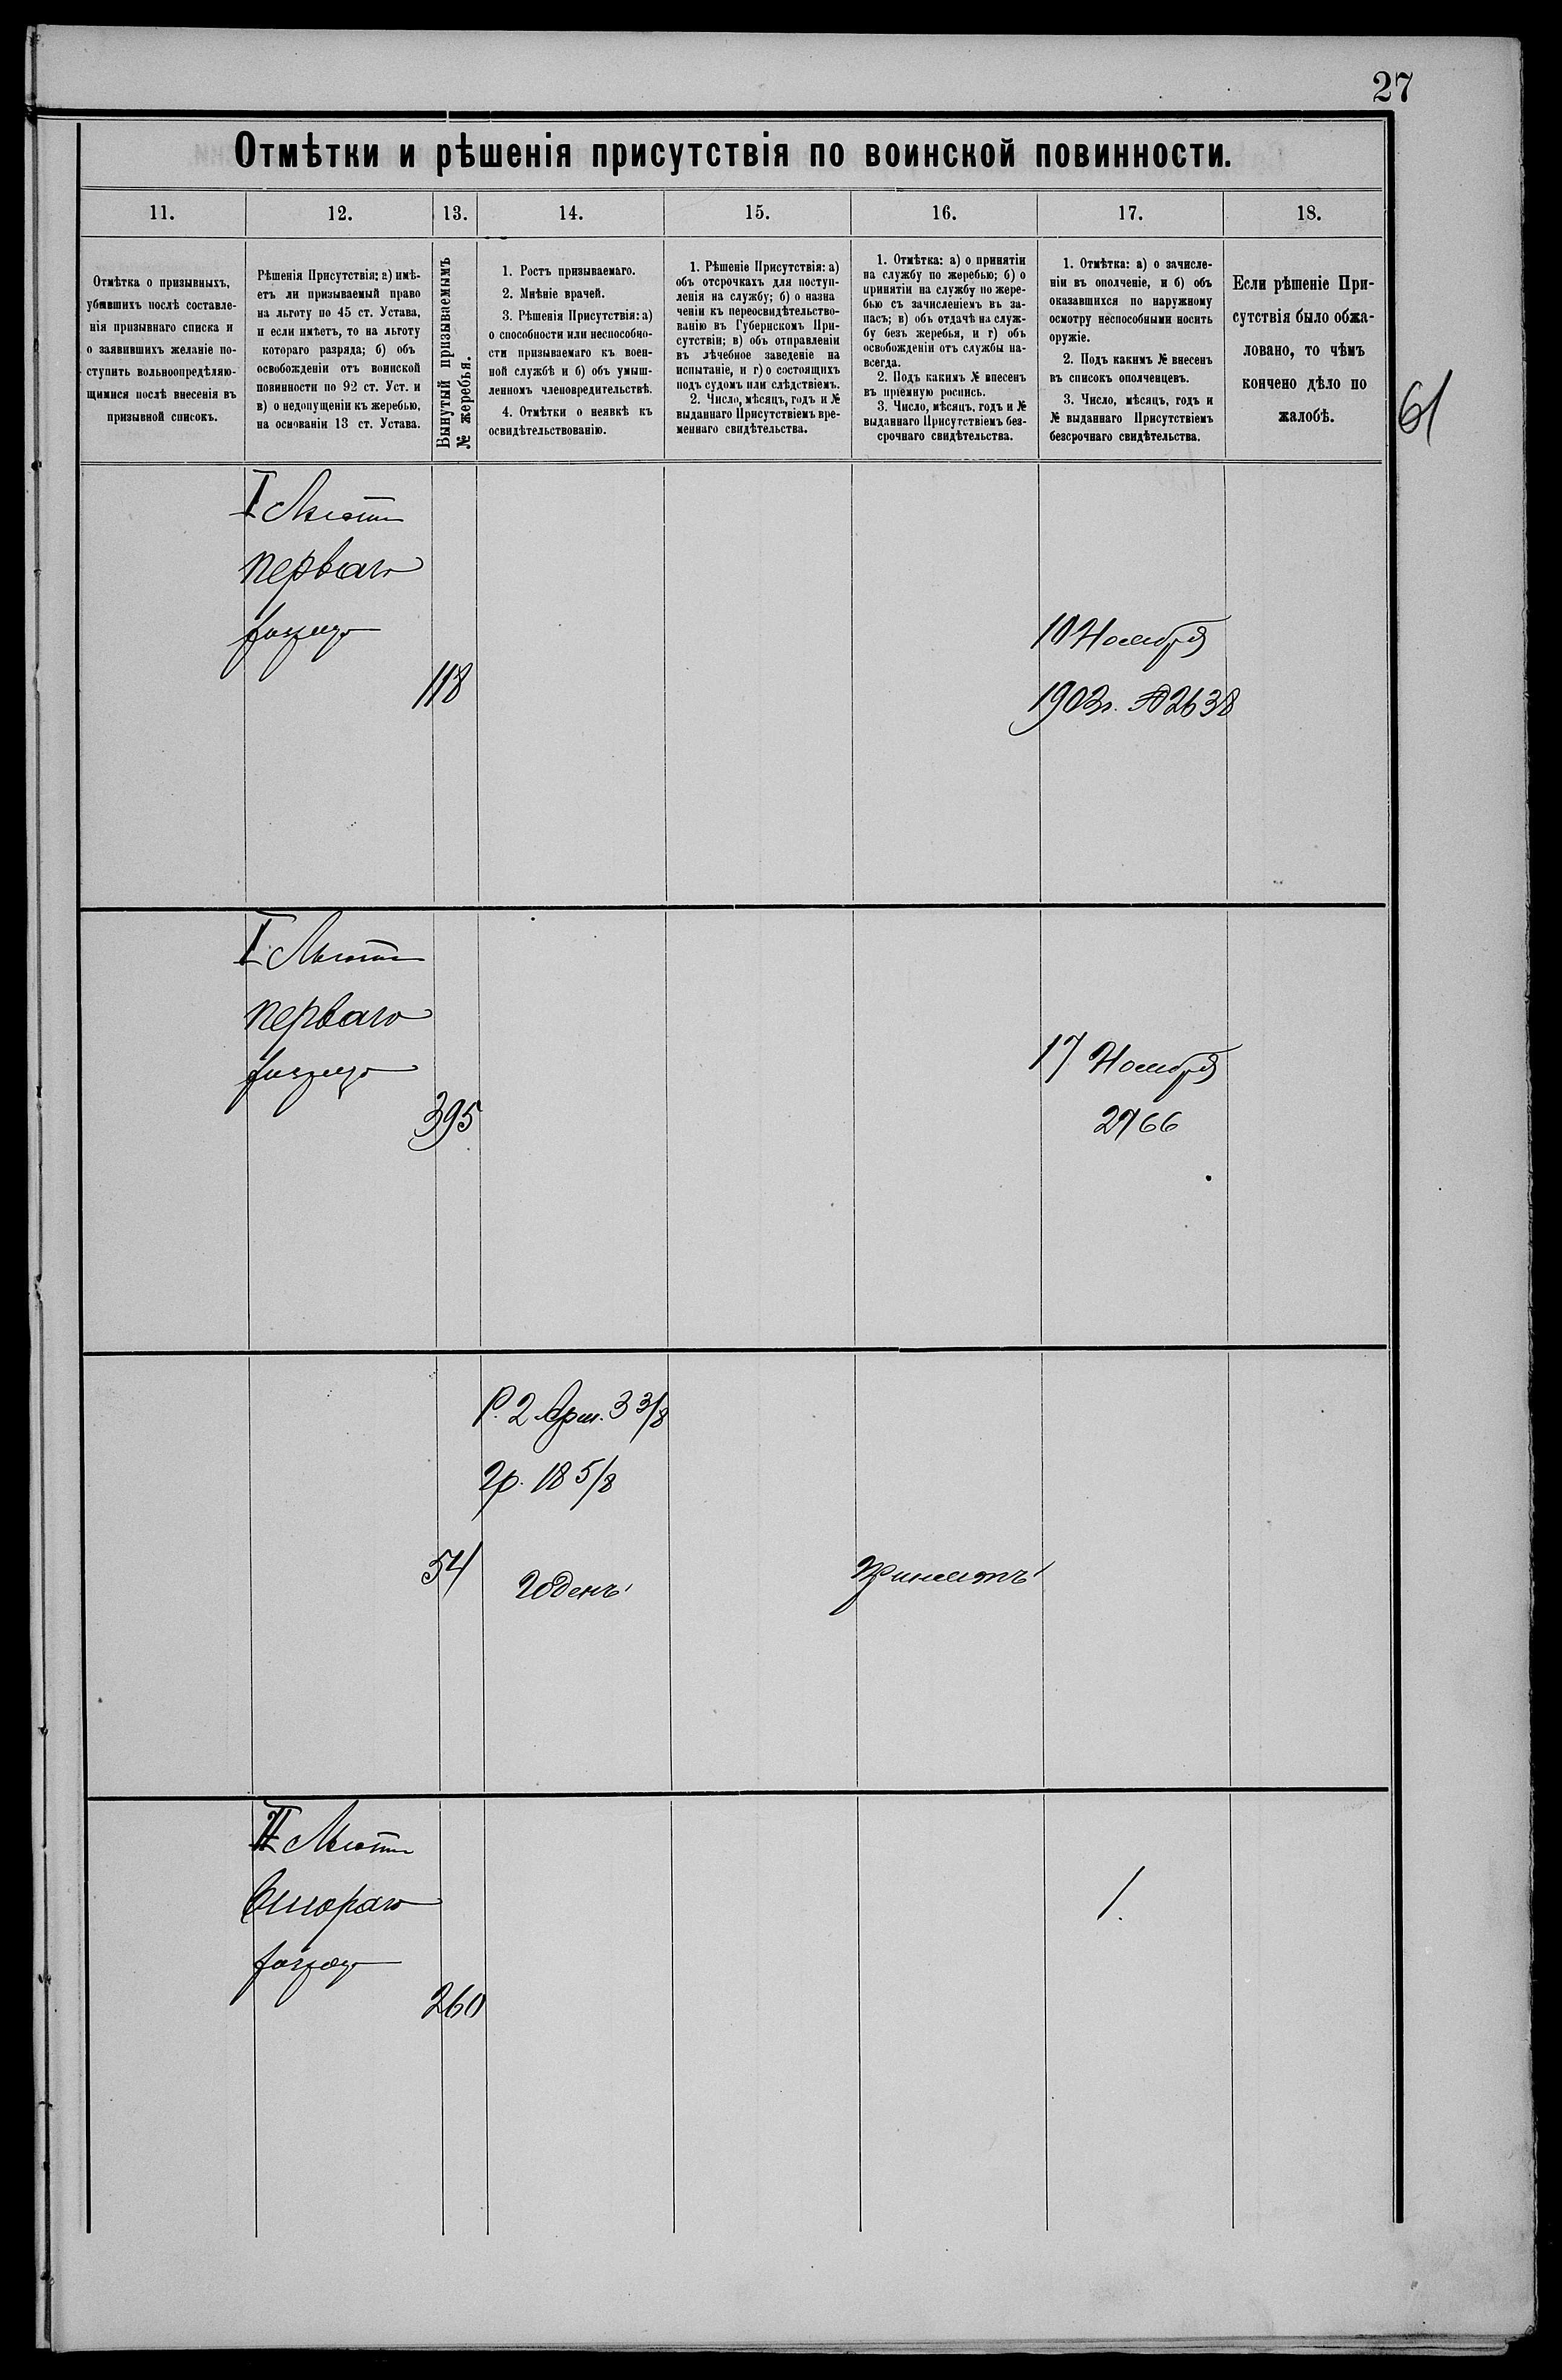 27
Отмѣтки и рѣшенія присутствія по воинской повинности.
11.
12.
13.
14.
15.
16.
17.
18.
Отмѣтка о призывныхъ,
убывшихъ послѣ составле-
нія призывнаго списка и
о заявившихъ желаніе по-
ступить вольноопредѣляю-
щимися послѣ внесенія въ
призывной списокъ.
Рѣшенія Присутствія: а) имѣ-
етъ ли призываемый право
на льготу по 45 ст. Устава,
и если имѣетъ, то на льготу
котораго разряда; б) объ
освобожденіи отъ воинской
повинности по 92 ст. Уст. и
в) о недопущеніи къ жеребью,
на основаніи 13 ст. Устава.
Вынутый призываемымъ
№ жеребья.
1. Ростъ призываемаго.
2. Мнѣніе врачей.
3. Рѣшенія Присутствія: а)
о способности или неспособно-
сти призываемаго къ воен-
ной службѣ и б) объ умыш-
ленномъ членовредительствѣ.
4. Отмѣтки о неявкѣ къ
освидѣтельствованію.
1. Рѣшеніе Присутствія: а)
объ отсрочкахъ для поступ-
ленія на службу; б) о назна
ченіи къ переосвидѣтельство-
ванію въ Губернскомъ При-
сутствіи; в) объ отправленіи
въ лѣчебное заведеніе на
испытаніе, и г) о состоящихъ
подъ судомъ или слѣдствіемъ.
2. Число, мѣсяцъ, годъ и №
выданнаго Присутствіемъ вре-
меннаго свидѣтельства.
1. Отмѣтка: а) о принятіи
на службу по жеребью; б) о
принятіи на службу по жере-
бью съ зачисленіемъ въ за-
пасъ; в) объ отдачѣ на служ-
бу безъ жеребья, и г) объ
освобожденіи отъ службы на-
всегда.
2. Подъ какимъ № внесенъ
въ пріемную роспись.
3. Число, мѣсяцъ, годъ и №
выданнаго Присутствіемъ без-
срочнаго свидѣтельства.
1. Отмѣтка: а) о зачисле-
ніи въ ополченіе, и б) объ
оказавшихся по наружному
осмотру неспособными носить
оружіе.
2. Подъ какимъ № внесенъ
въ списокъ ополченцевъ.
3. Число, мѣсяцъ, годъ и
№ выданнаго Присутствіемъ
безсрочнаго свидѣтельства.
Если рѣшеніе При-
сутствія было обжа-
ловано, то чѣмъ
кончено дѣло по
жалобѣ.
61
I Льготы
перваго
разряда
118
10 Ноября
1903г. № 2638
I Льготы
перваго
разряда
395
17 Ноября
2766
Р. 2 Арш. 3 3/8
гр. 18 5/8
54
годенъ
принятъ
II Льготы
втораго
разряда
260
1.